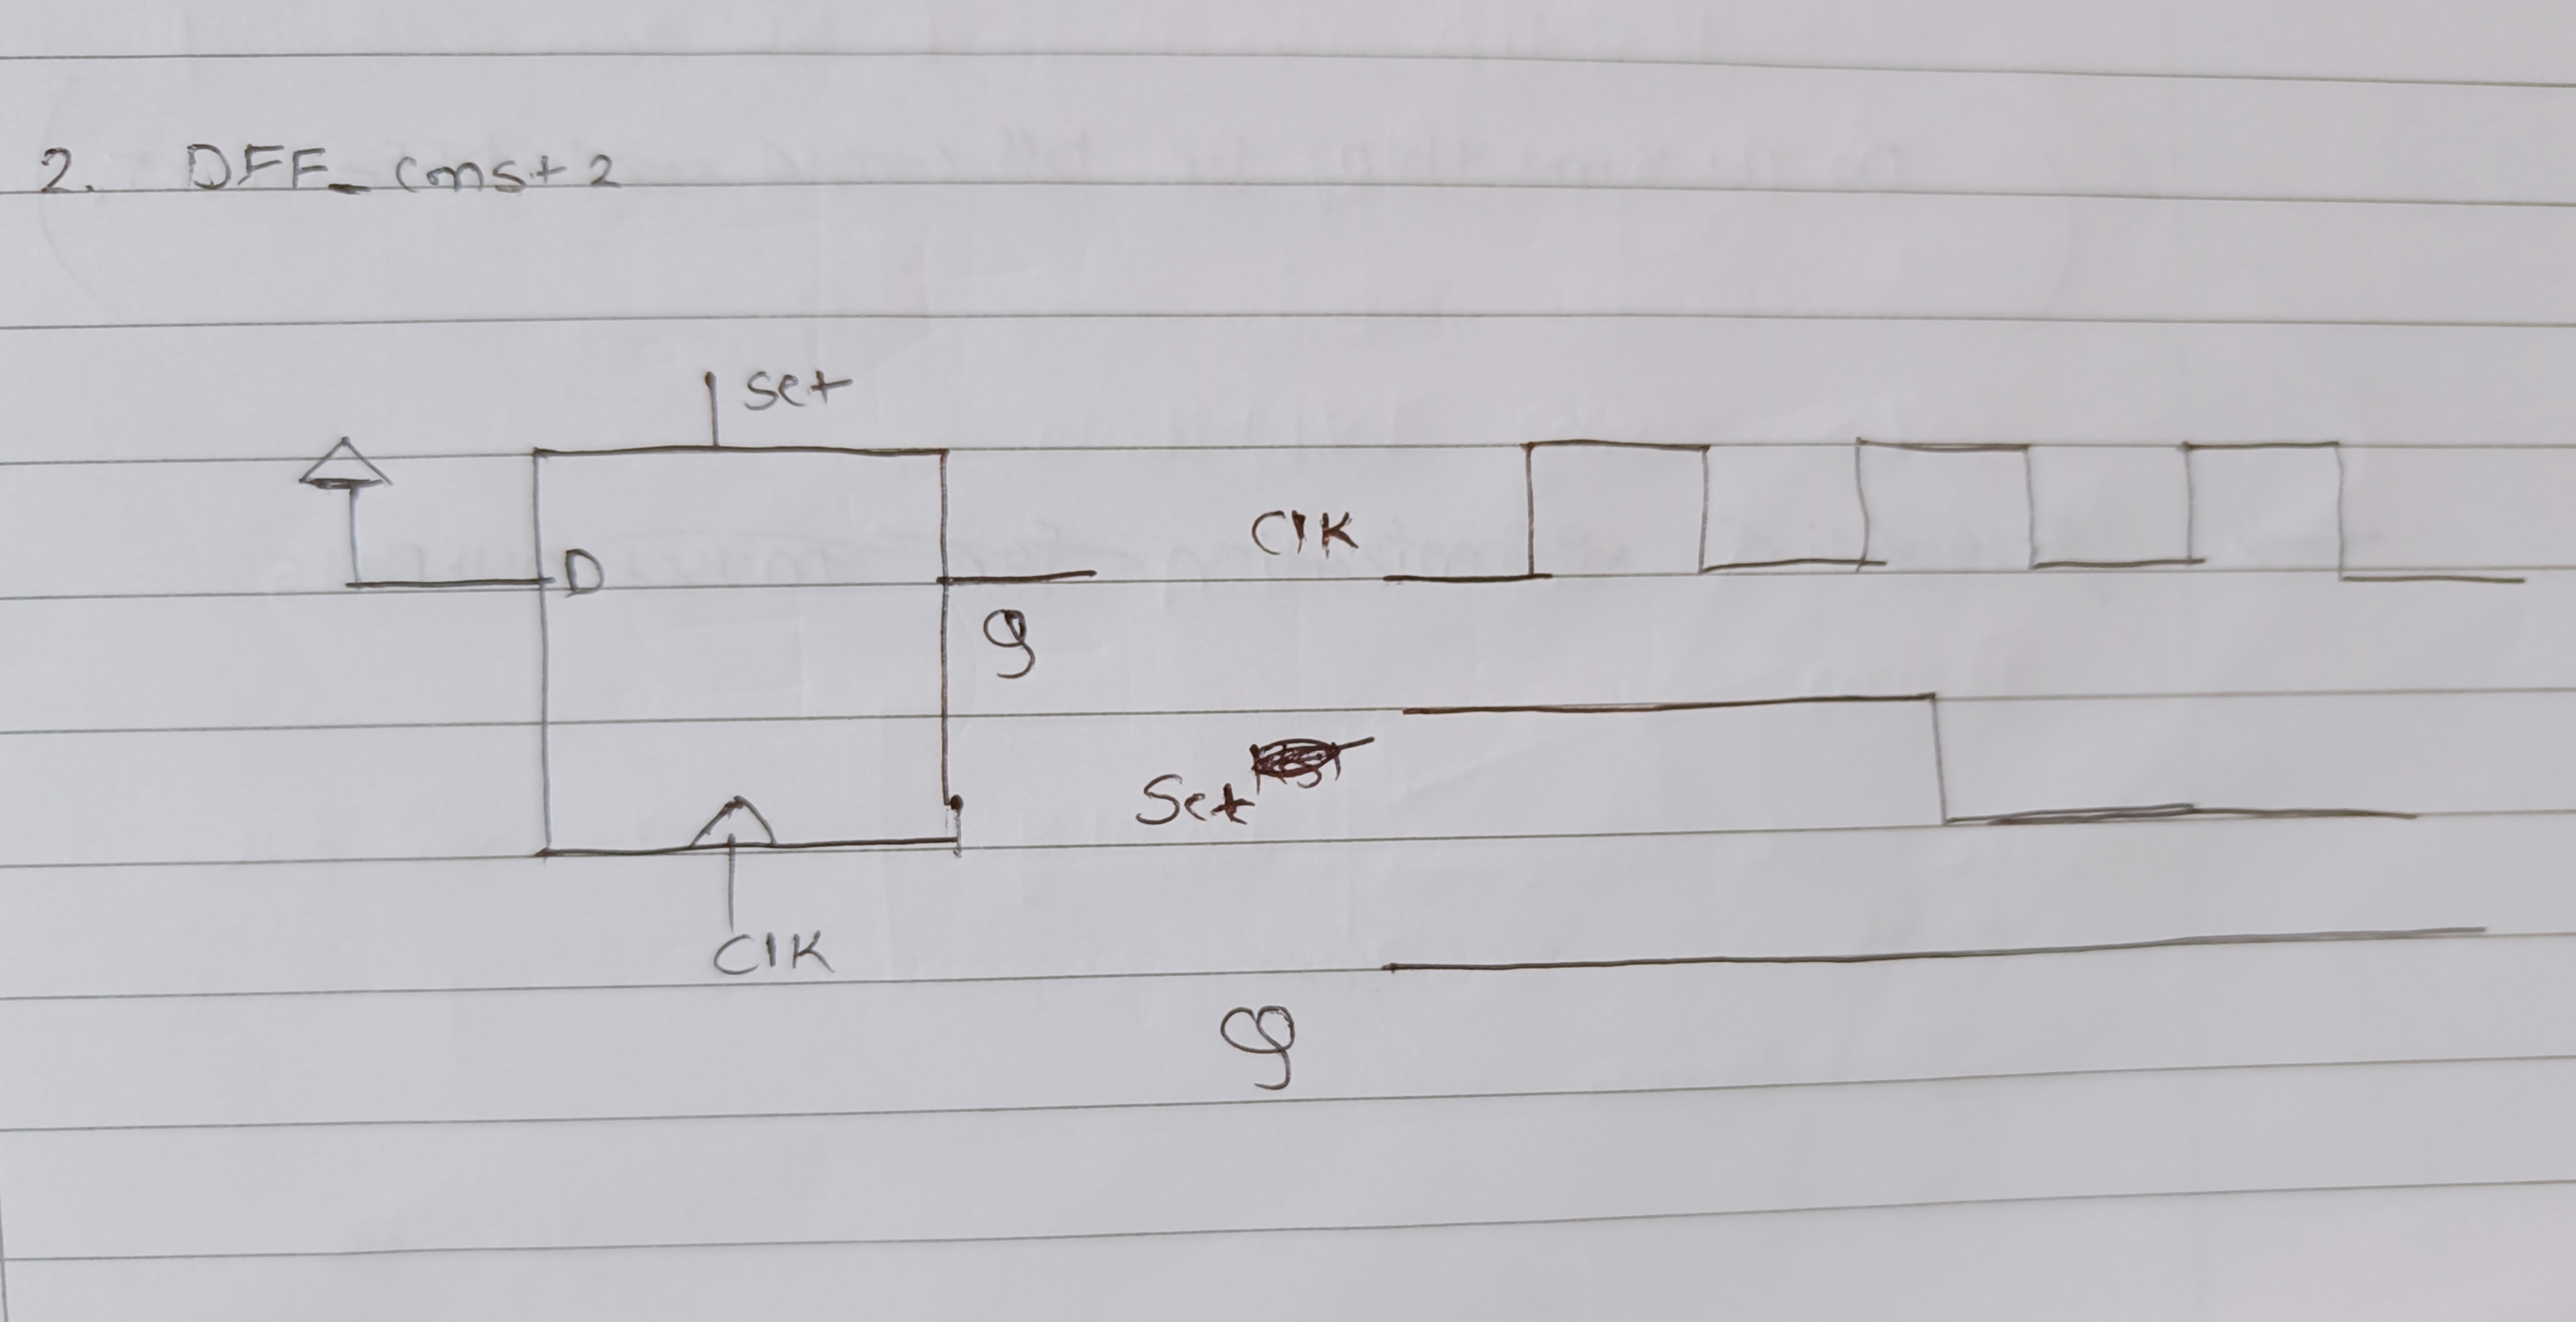 2. DFF_const2
Set
D
Q
Clk
Clk
Set
Q